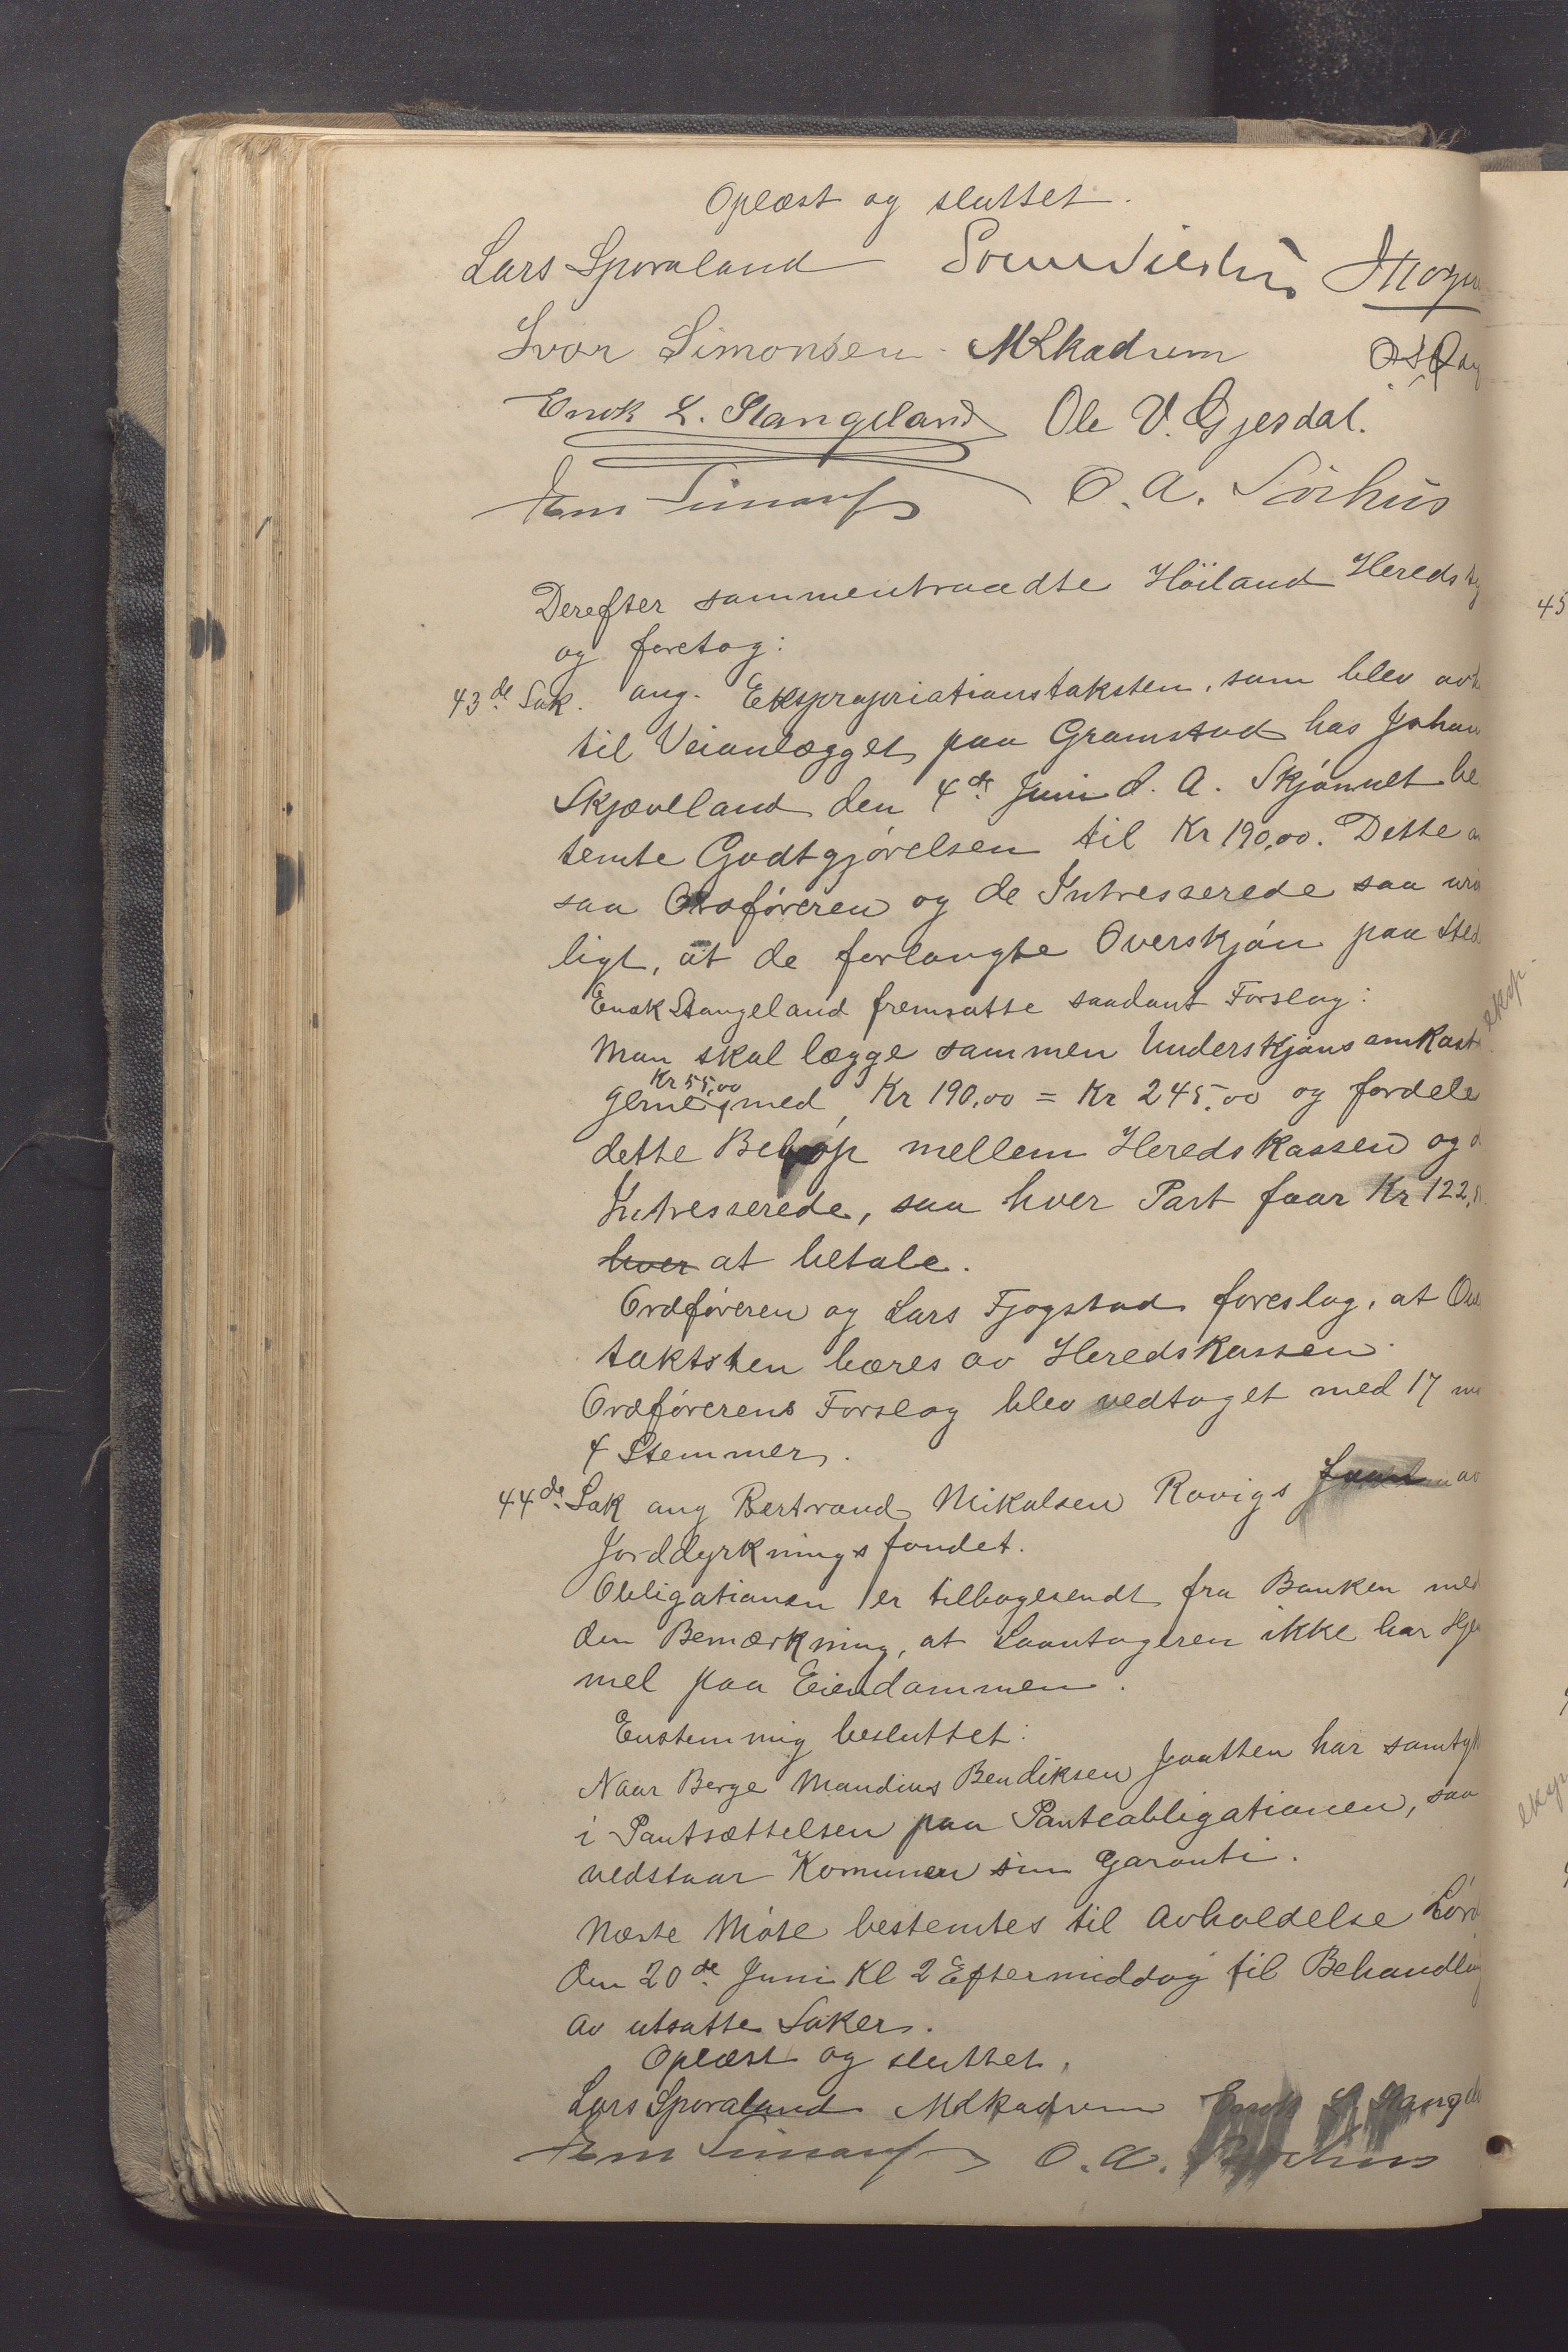 Oplæst og sluttet.
Lars Sporaland
Ivar Simonsen MSkadsem
Enok L. Stangeland Ole V. Gjesdal.
O. A. Sörhus
Derefter sammentraadte Höiland Hereds
og foretog:
43de Sak. ang. Ekspropriationstaksten, som blev
til Veianlægget paa Gramstad hos Johan
Skjæveland den 4de Juni d. A. Skjönnet be
temte Godtgjörelsen til Kr 190,00. Dette
saa Ordföreren og de Intresserede saa
ligt, at de forlangte Overskjön paa
Enok Stangeland fremsatte saadant Forslag:
Man skal lægge sammen Underskjöns omkost
gerne Kr 55,00 med Kr 190,00 = Kr 245,00 og fordele
dette Belöp mellem Heredskassen og
Intresserede, saa hver Part faar Kr 122,
hver at betale.
Ordföreren og Lars Fjogstad foreslog, at
taktsten bæres av Heredskassen.
Ordförerens Forslag blev vedtaget med 17
4 Stemmer.
44de Sak ang Bertrand Mikalsen Rovigs Laan
Jorddyrkningsfondet.
Obligationen er tilbagesendt fra Banken med
den Bemærkning, at Laantageren ikke har Hje
mel paa Eiendommen.
Enstemmig besluttet:
Naar Berge Mandius Bendiksen Jaatten har samty
i Pantsættelsen paa Panteobligationen, saa
vedstaar Komunen sin Garanti.
Næste Möte bestemtes til Avholdelse Lörd
den 20de Juni Kl 2 Eftermiddag til Behandling
av utsatte Saker.
Oplæst og sluttet.
Lars Sporaland MSkadsem Enok L Stangel
O. A. Sörhus
45
eksp.